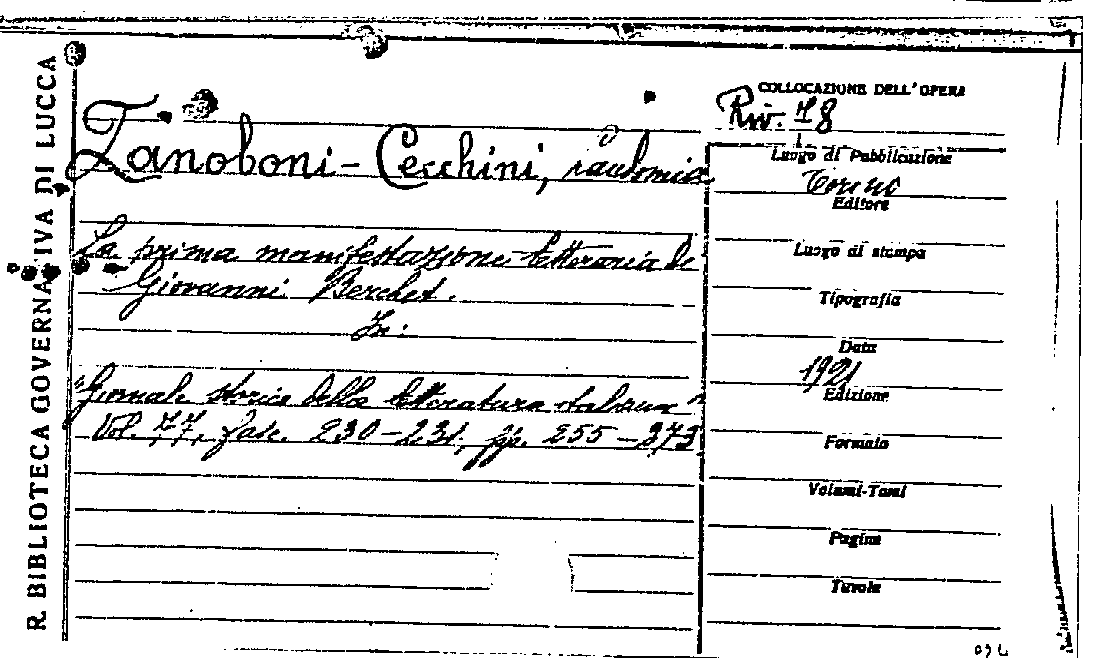 R. BIBLIOTECA GOVERNATIVA DI LUCCA
Zanoboni-Cecchini,
La prima manifestazione letteraria di
Giovanni Berchet.
In:
"Giornale storico della letteratura italiana"
Vol. 77, fasc. 230-231, pp. 255-273
COLLOCAZIONE DELL'OPERA
Riv. 78
Luogo di Pubblicazione
Torino
Editore
Luogo di stampa
Tipografia
Data
1921
Edizione
Formato
Volumi-Tomi
Pagine
Tavole